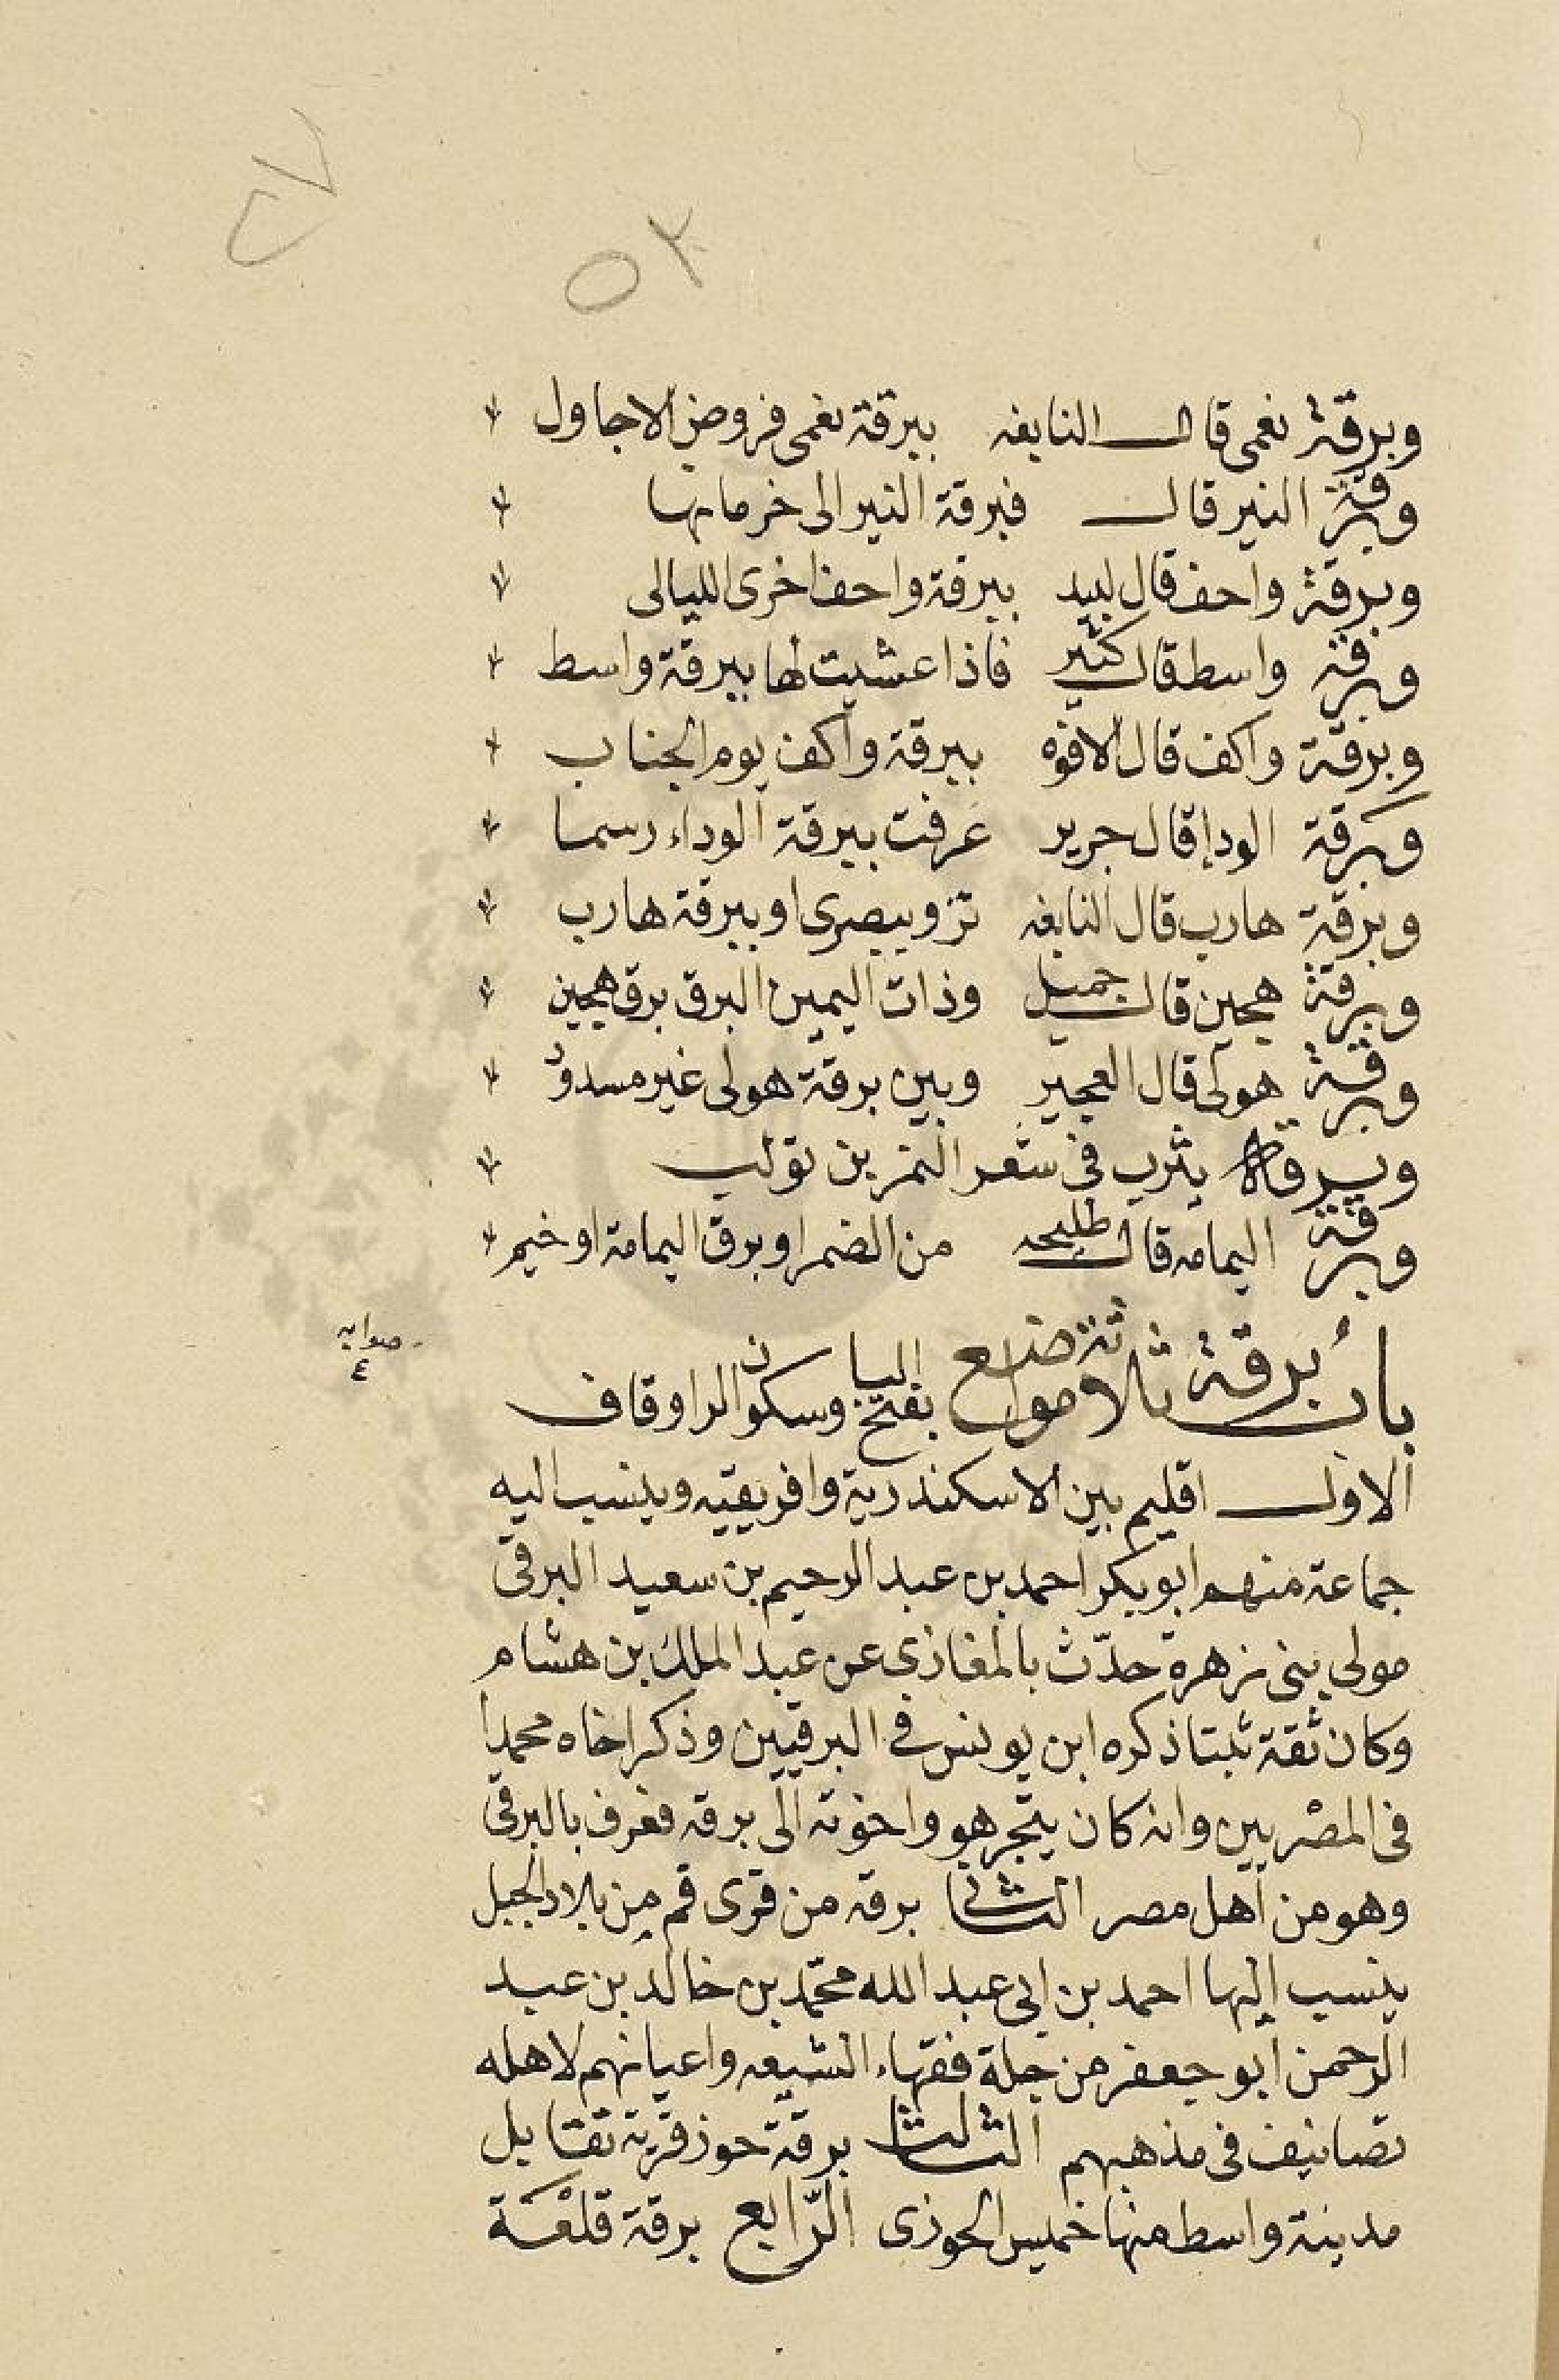 ٥٣
وبرقة نعمى قال النابغه ببرقة نعمى فروض الاجاول
وبرقة النير قال فبرقة النير الى خرمائها
وبرقة واحف قال لبيد ببرقة واحف اخرى الليالى
وبرقة واسط قال كثير فاذا عشيت لها ببرقة واسط
وبرقة واكف قال الافوه ببرقة واكف يوم الجناب
وبرقة الوداء قال جرير عرفت ببرقة الوداء رسما
وبرقة هارب قال النابغه تزو ببصرى او ببرقة هارب
وبرقة هجين قال جميل وذات اليمين البرق برق هجين
وبرقة هولى قال العجير وبين برقة هولى غير مسدود
وبرقاة يثرب فى شعر النمر بن تولب
وبرقة اليمامه قال طليحه من الضمر او برق اليمامة او خيم
باب برقة ثلاثة مواضع بفتح البا وسكون الرا وقاف
صوابه ٤
الاول اقليم بين الاسكندرية وافريقيه وينسب اليه
جماعة منهم ابو بكر احمد بن عبد الرحيم بن سعيد البرقى
مولى بنى زهرة حدّث بالمغازى عن عبد الملك بن هشام
وكان ثقة ثبتا ذكره ابن يونس فى البرقيين وذكر اخاه محمدا
فى المصْريين وانه كان يتجر هو واخوته الى برقه فعرف بالبرقى
وهو من اهل مصر الثانى برقه من قرى قم من بلاد الجبل
ينسب اليها احمد بن ابى عبد الله محمّد بن خالد بن عبد
الرحمن ابو جعفر من جلة فقهاء الشيعه واعيانهم لاهله
تصانيف فى مذهبهم الثالث برقة حوز قرية تقابل
مدينة واسط منها خميس الحوزى الرّابع برقة قلعْة